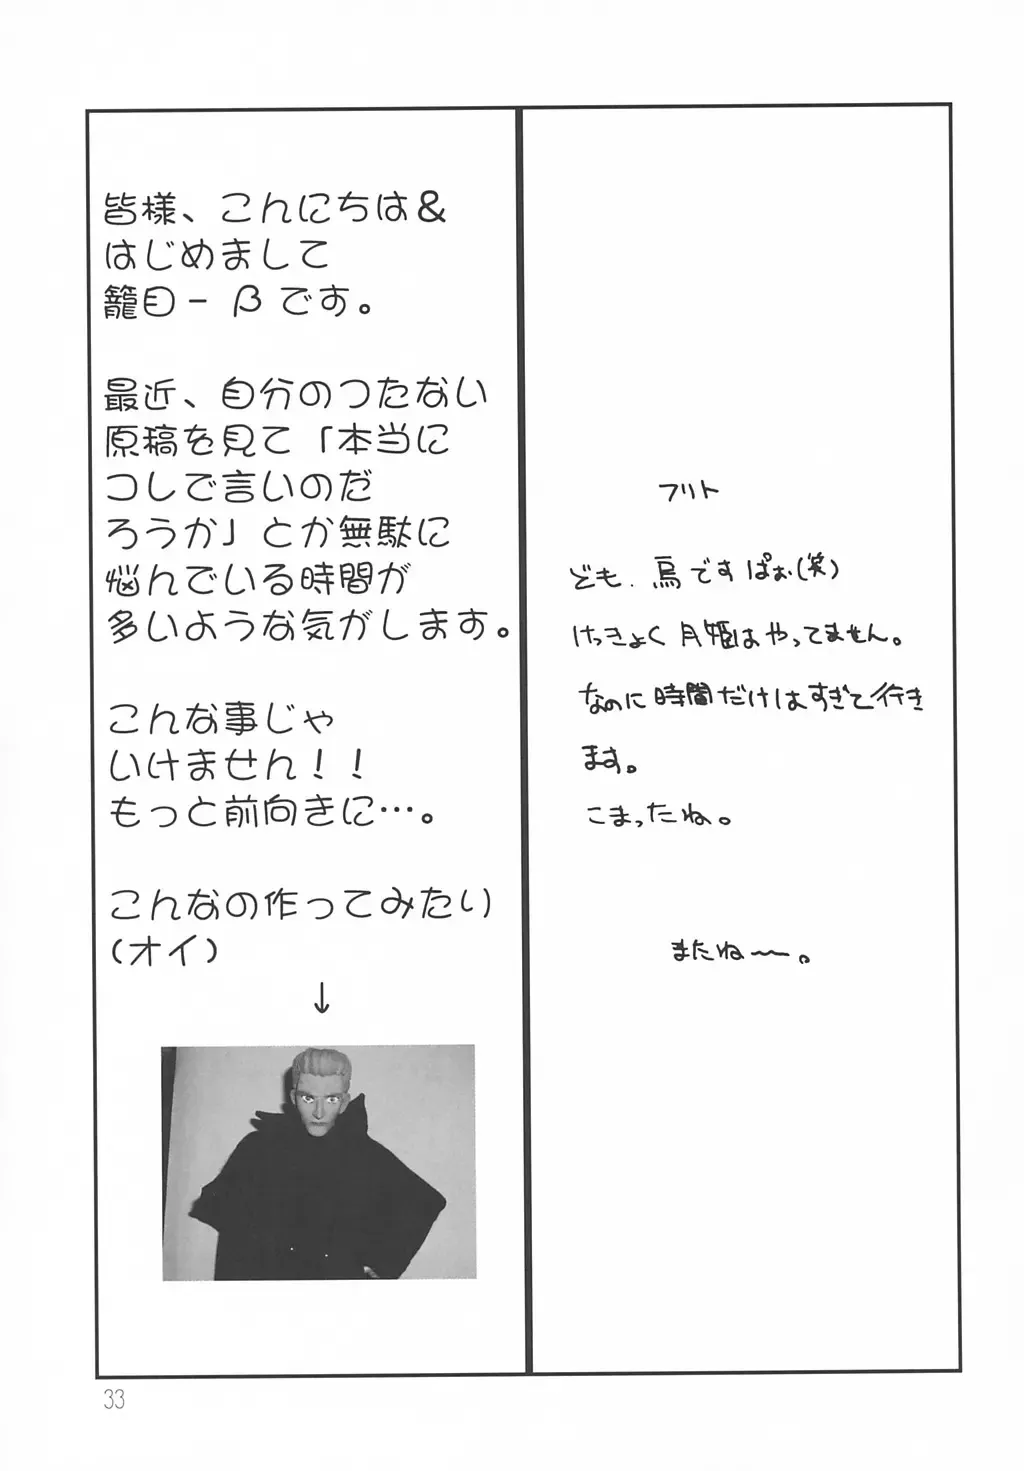 皆様、こんにちは&
はじめまして
籠目-βです。
最近、自分のつたない
原稿を見て「本当に
コレで言いのだ
ろうか」とか無駄に
悩んでいる時間が
多いような気がします。
こんな事じゃ
いけません!!
もっと前向きに…。
こんなの作ってみたい
(オイ)
↓
フリト
ども、鳥ですぱぉ(笑)
けっきょく月姫はやってません。
なのに時間だけはすぎて行き
ます。
こまったね。
またね〜。
33